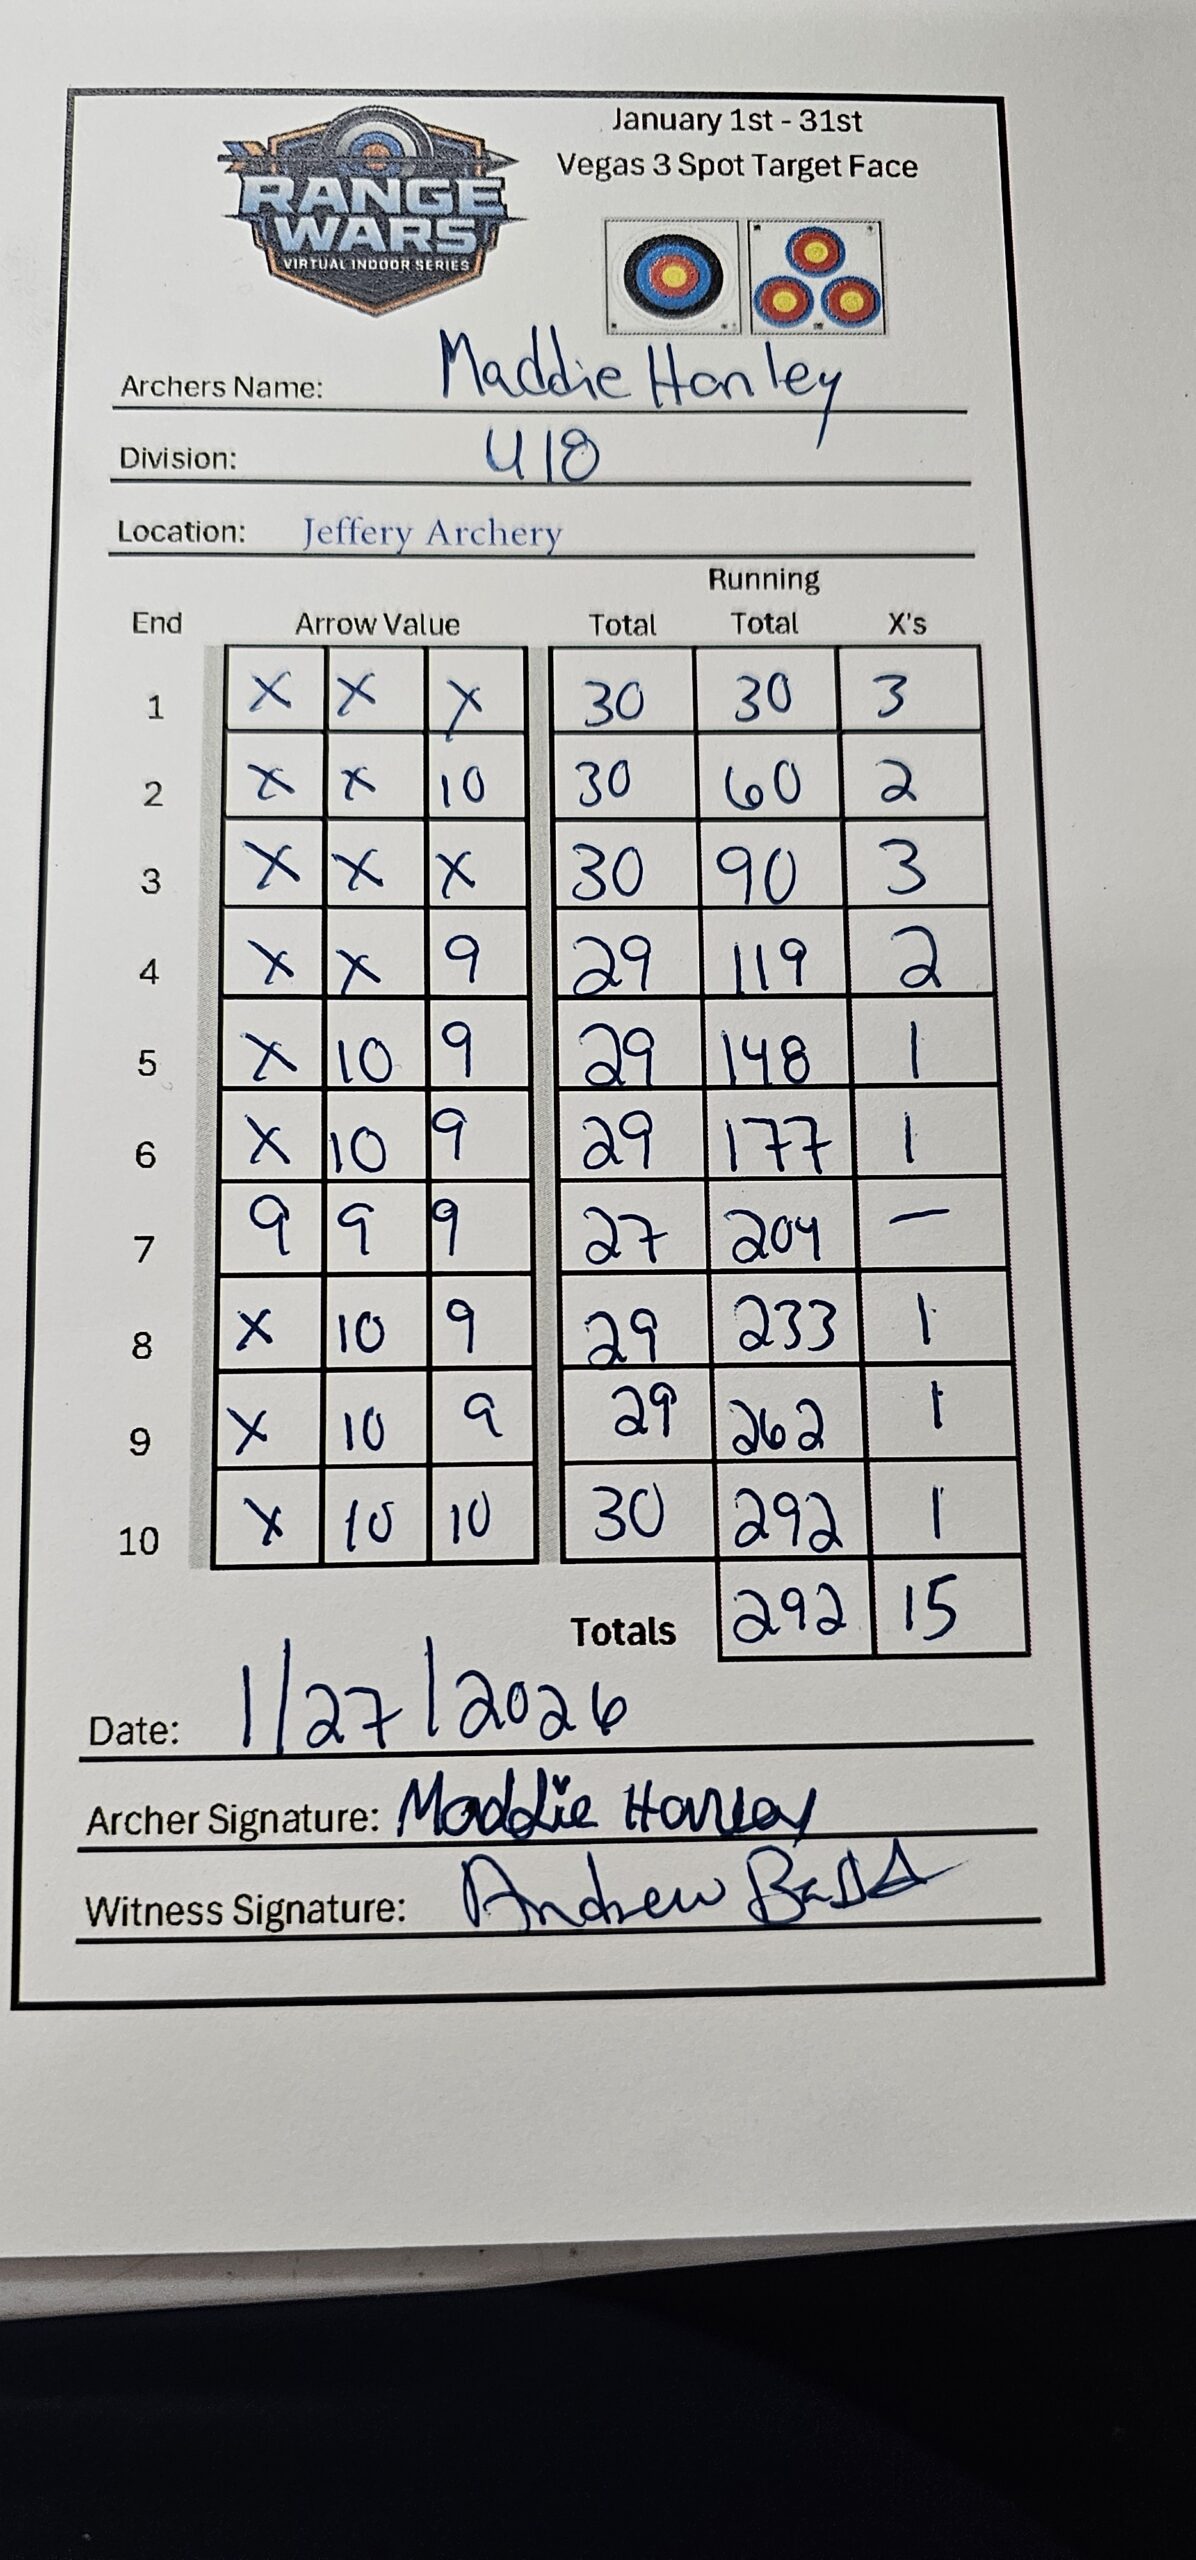 January 1st - 31st
Vegas 3 Spot Target Face
RANGE
WARS
VIRTUAL INDOOR SERIES
Archers Name: Maddie Hanley
Division: U18
Location: Jeffery Archery
Running
End Arrow Value Total Total X's
1 X X X 30 30 3
2 X X 10 30 60 2
3 X X X 30 90 3
4 X X 9 29 119 2
5 X 10 9 29 148 1
6 X 10 9 29 177 1
7 9 9 9 27 204 —
8 X 10 9 29 233 1
9 X 10 9 29 262 1
10 X 10 10 30 292 1
Totals 292 15
Date: 1/27/2026
Archer Signature: Maddie Hanley
Witness Signature: Andrew